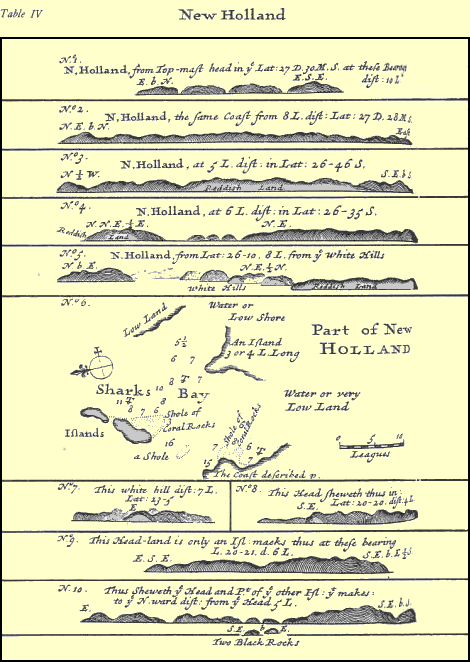 Table IV
New Holland
N.º1.
N, Holland, from Top-mast head in ÿ Lat: 27 D. 30 M. S. at these Bearing
E. b. N.
E. S. E.
dist: 10 L.
N.º 2.
N, Holland, the same Coast from 8 L. dist: Lat: 27 D. 28 M s.
N. E. b. N.
East
N.º3.
N, Holland, at 5 L. dist: in Lat: 26-46 S.
N ½ W.
S. E. b s.
Reddish Land
N.º4.
N, Holland, at 6 L dist: in Lat: 26-35 S.
N. N. E. ½ E.
N. E.
Reddish Land
N.º5.
N, Holland, from Lat: 26-10. 8 L. from ÿ White Hills
N b E.
N E. ½ N.
White Hills
Reddish Land
N.º 6.
Low Land
Water or
Low Shore
Part of New
HOLLAND
5½
An Island
3 or 4 L. Long
6 7
8 7
Sharks Bay
10 8
Water or very
Low Land
11
8 7 6
Shole of
Coral Rocks
Shole of
Coral Rocks
Islands
16
a Shole
7
6
7
15
0 5 10
Leagues
The Coast described p.
N.º7.
This white hill dist: 7 L.
Lat: 23-5
E
N.º8.
This Head sheweth thus in:
S. E. Lat: 20-20. dist 4 L
N.º9.
This Head-land is only an Isl: maeks thus at these bearing
L. 20-21. d. 6 L.
E. S. E.
S. E. b. E ½ s.
N. 10.
Thus Sheweth ÿ Head and P.t of ÿ other Isl: ÿ makes:
to ÿ N.ward dist: from ÿ Head 5 L.
E.
S. E. b. s.
S. E. b E.
Two Black Rocks